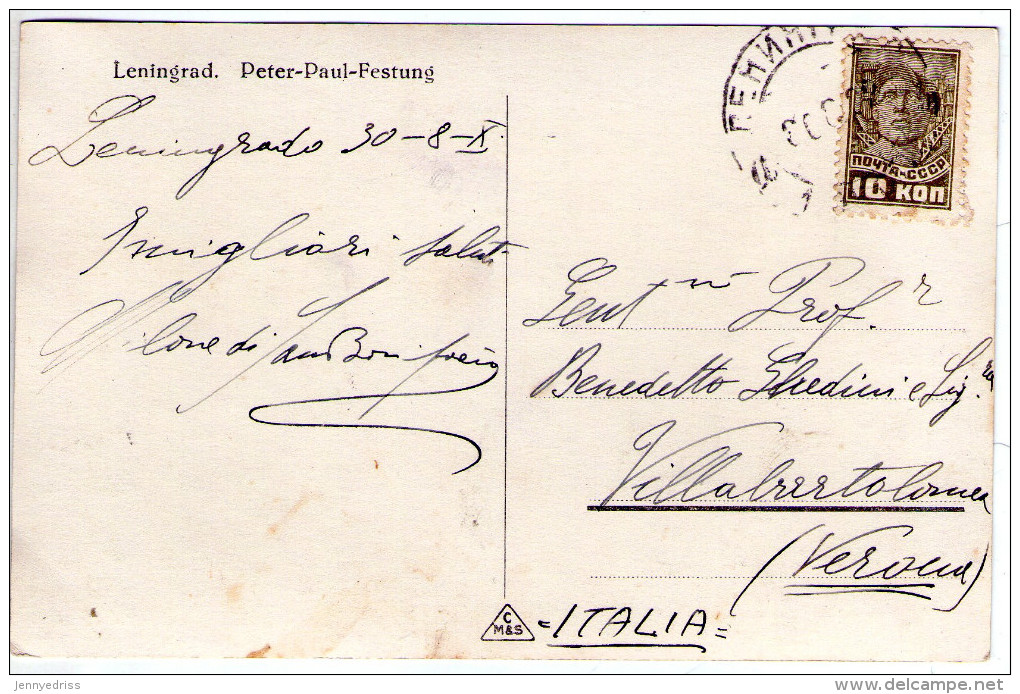 Leningrad. Peter-Paul-Festung
Leningrado 30-8-X
I migliori saluti
Milone di San Bonifacio
ПОЧТА-СССР
10 КОП
Gent mi Prof.r
Benedetto e Sig.ra
Villabartolomea
(Verona)
=ITALIA=
C
M&S
jennydriss
www.delcampe.net